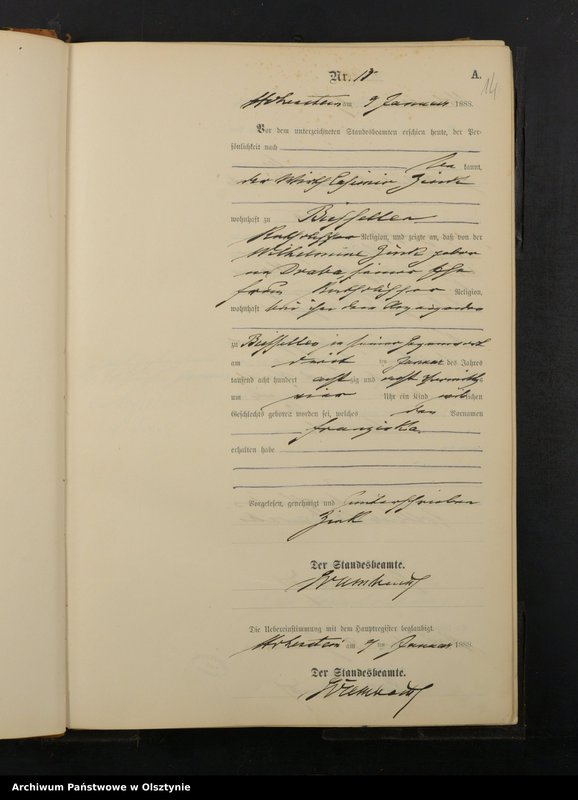 Nr.
A.
14
Hohenstein am 9 Januar 1888.
Vor dem unterzeichneten Standesbeamten erschien heute, der Per-
sönlichkeit nach
kannt,
der Wirth Casimir Zink
wohnhaft zu Biessellen
Katholischer Religion, und zeigte an, daß von der
Wilhelmine Zink gebor
ne seiner Ehe
frau Katholischer Religion,
wohnhaft bei ihm dem Anzeigenden
zu Biessellen in seiner Gegenwart
am Januar des Jahres
tausend acht hundert achtzig und acht Vormittags
um vier Uhr ein Kind weiblichen
Geschlechts geboren worden sei, welches den Vornamen
Franziska
erhalten habe
Vorgelesen, genehmigt und unterschrieben
Zink
Der Standesbeamte.
Die Uebereinstimmung mit dem Hauptregister beglaubigt.
Hohenstein am 9 ten Januar 1888.
Der Standesbeamte.
Archiwum Państwowe w Olsztynie